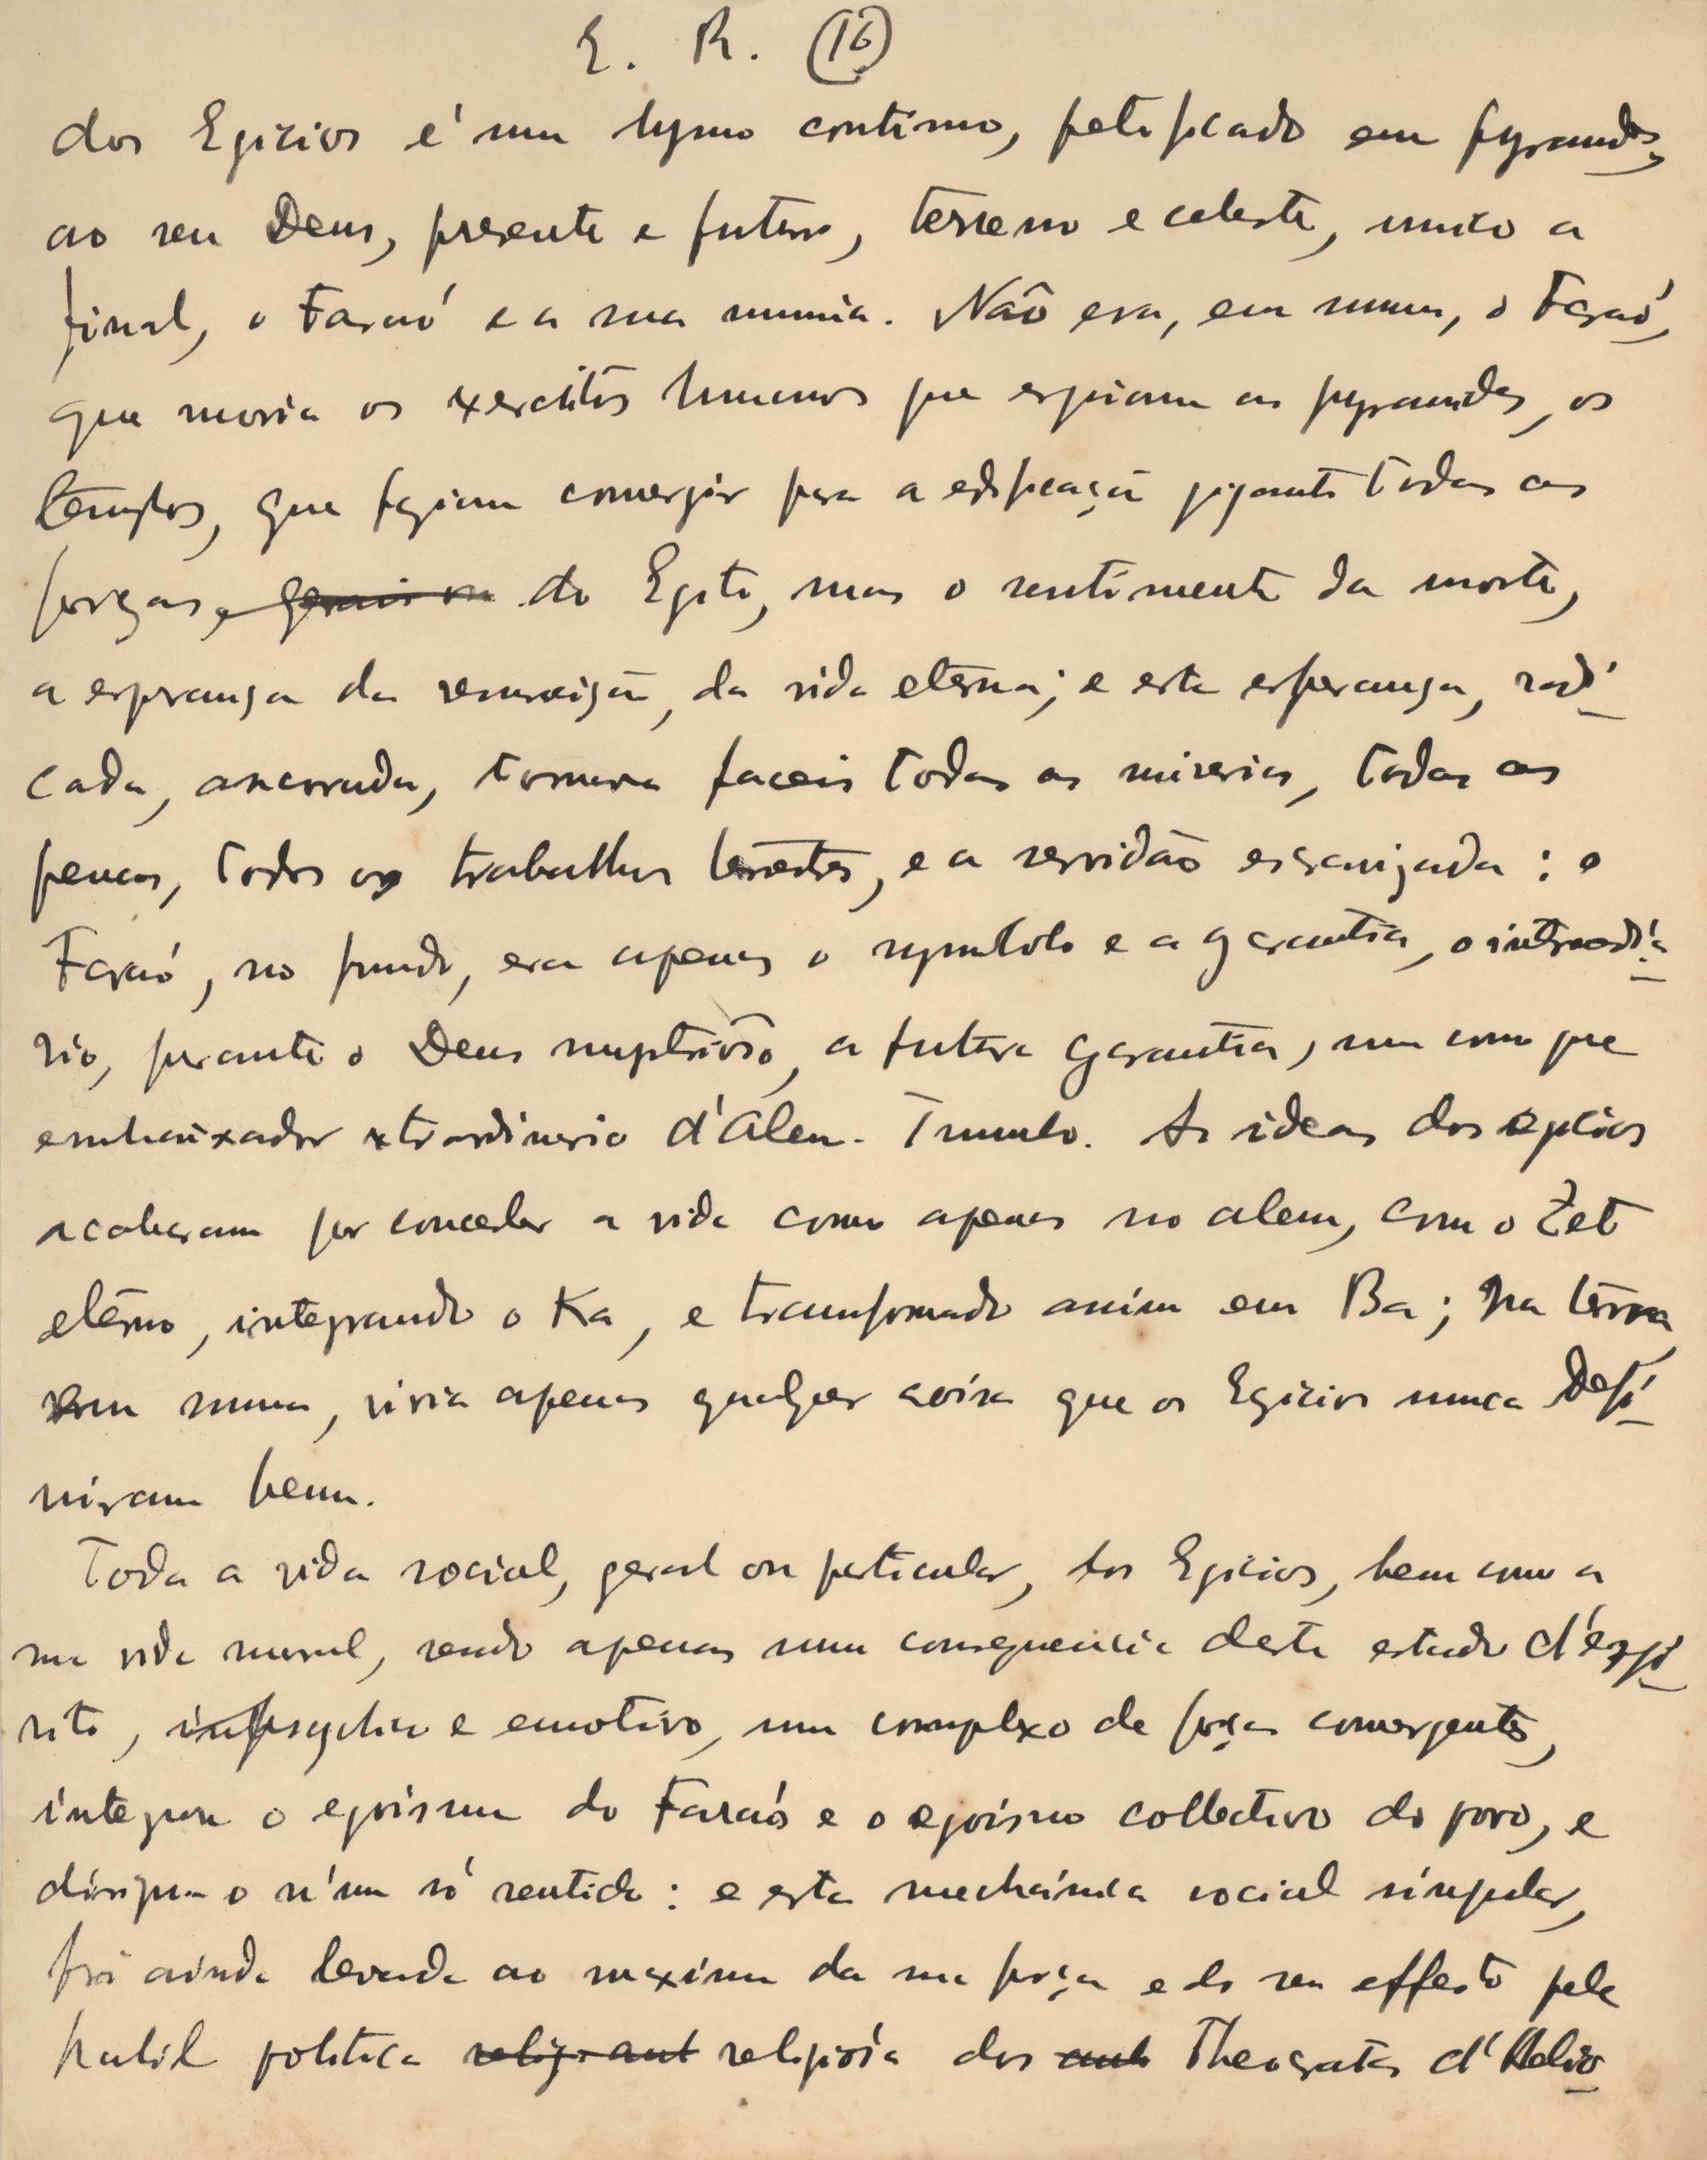 E. R. (16)
dos Egicios é um hymno continuo, petrificado em pyramides,
ao seu Deus, presente e futuro, terreno e celeste, unico a
final, o Faraó e a sua mumia. Não era, em summa, o Faraó,
que movia os exercitos humanos que erguiam as pyramides, os
templos, que faziam convergir para a edificação gigante todas as
forças, e geraes ou do Egito, mas o sentimento da morte,
a esperança da resurreição, da vida eterna; e esta esperança, radi-
cada, ancorada, tornava faceis todas as miserias, todas as
penas, todos os trabalhos terrestres, e a servidão organizada: o
Faraó, no fundo, era apenas o symbolo e a garantia, o intermediá-
rio, perante o Deus mysterioso, a futura garantia, um como que
embaixador extraordinario d'Alem-Tumulo. As ideas dos egicios
acabaram por conceber a vida como apenas no alem, com o Zet
eterno, integrando o Ka, e transformado assim em Ba; na terra,
em summa, vivia apenas qualquer coisa que os Egicios nunca defi-
niram bem.
Toda a vida social, geral ou particular, dos Egicios, bem como a
sua vida moral, sendo apenas uma consequencia deste estado d'espi-
rito, psychico e emotivo, um complexo de forças convergentes,
integrou o egoismo do Faraó e o egoismo collectivo do povo, e
dirigiu-o n'um só sentido: e esta mechánica social singular,
foi ainda levada ao maximo da sua força e do seu effeito pela
habil politica religiosa dos Theocratas d'Helio-